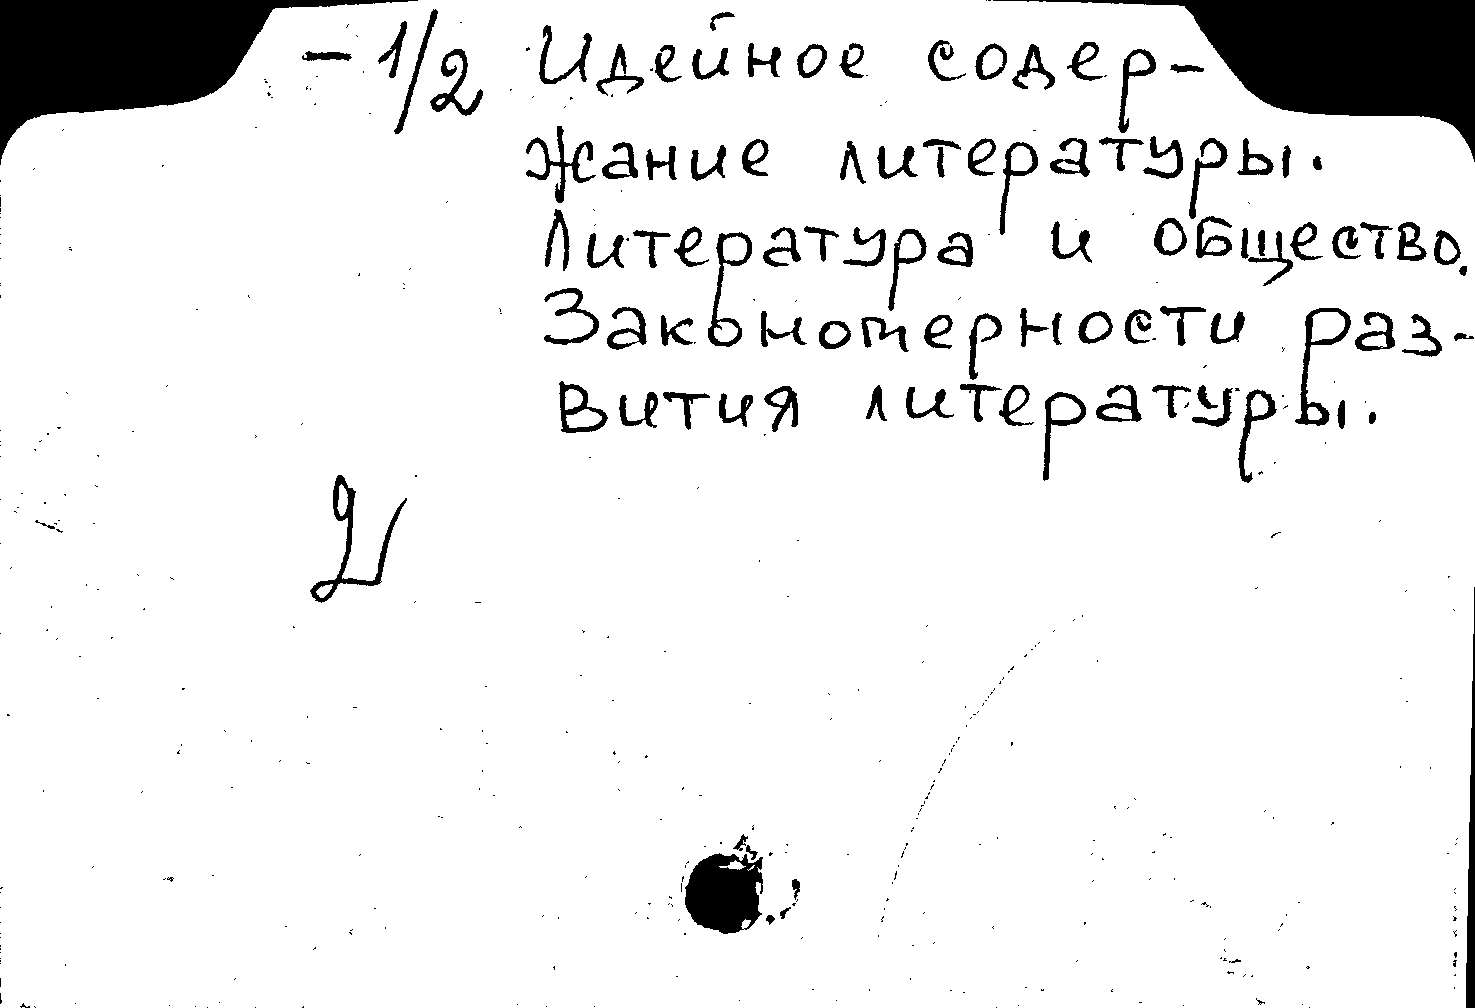 - 1/2 Идейное содер-
жание литературы.
Литература и общество.
Закономерности раз-
вития литературы.